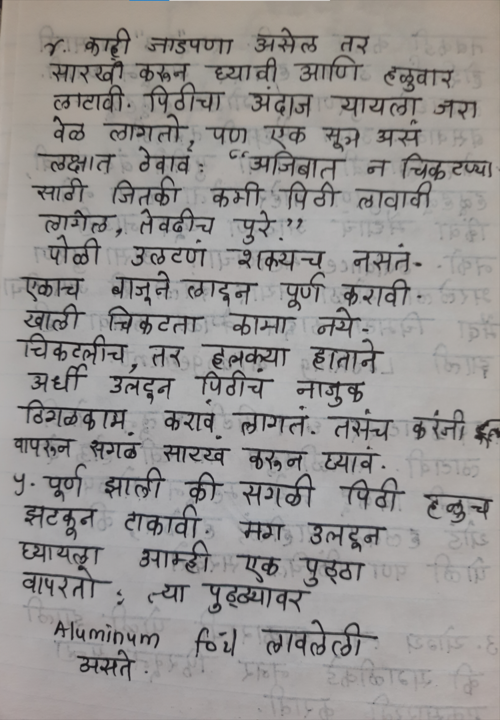 ४. काही जाडपणा असेल तर
सारखी करून घ्यावी आणि हळुवार
लाटावी. पिठीचा अंदाज यायला जरा
वेळ लागतो, पण एक सूत्र असं
लक्षात ठेवावं: "अजिबात न चिकटण्या-
साठी जितकी कमी पिठी लावावी
लागेल, तेवढीच पुरे."
पोळी उलटणं शक्यच नसतं.
एकाच बाजूने लाटून पूर्ण करावी.
खाली चिकटता कामा नये.
चिकटलीच, तर हलक्या हाताने
अर्धी उलटून पिठीचं नाजुक
ठिगळकाम करावं लागतं. तसंच करंजी
वापरून सगळं सारखं करून घ्यावं.
५. पूर्ण झाली की सगळी पिठी हळुच
झटकून टाकावी. मग उलटून
घ्यायला आम्ही एक पुठ्ठा
वापरतो; त्या पुठ्ठ्यावर
Aluminum foil लावलेली
असते.